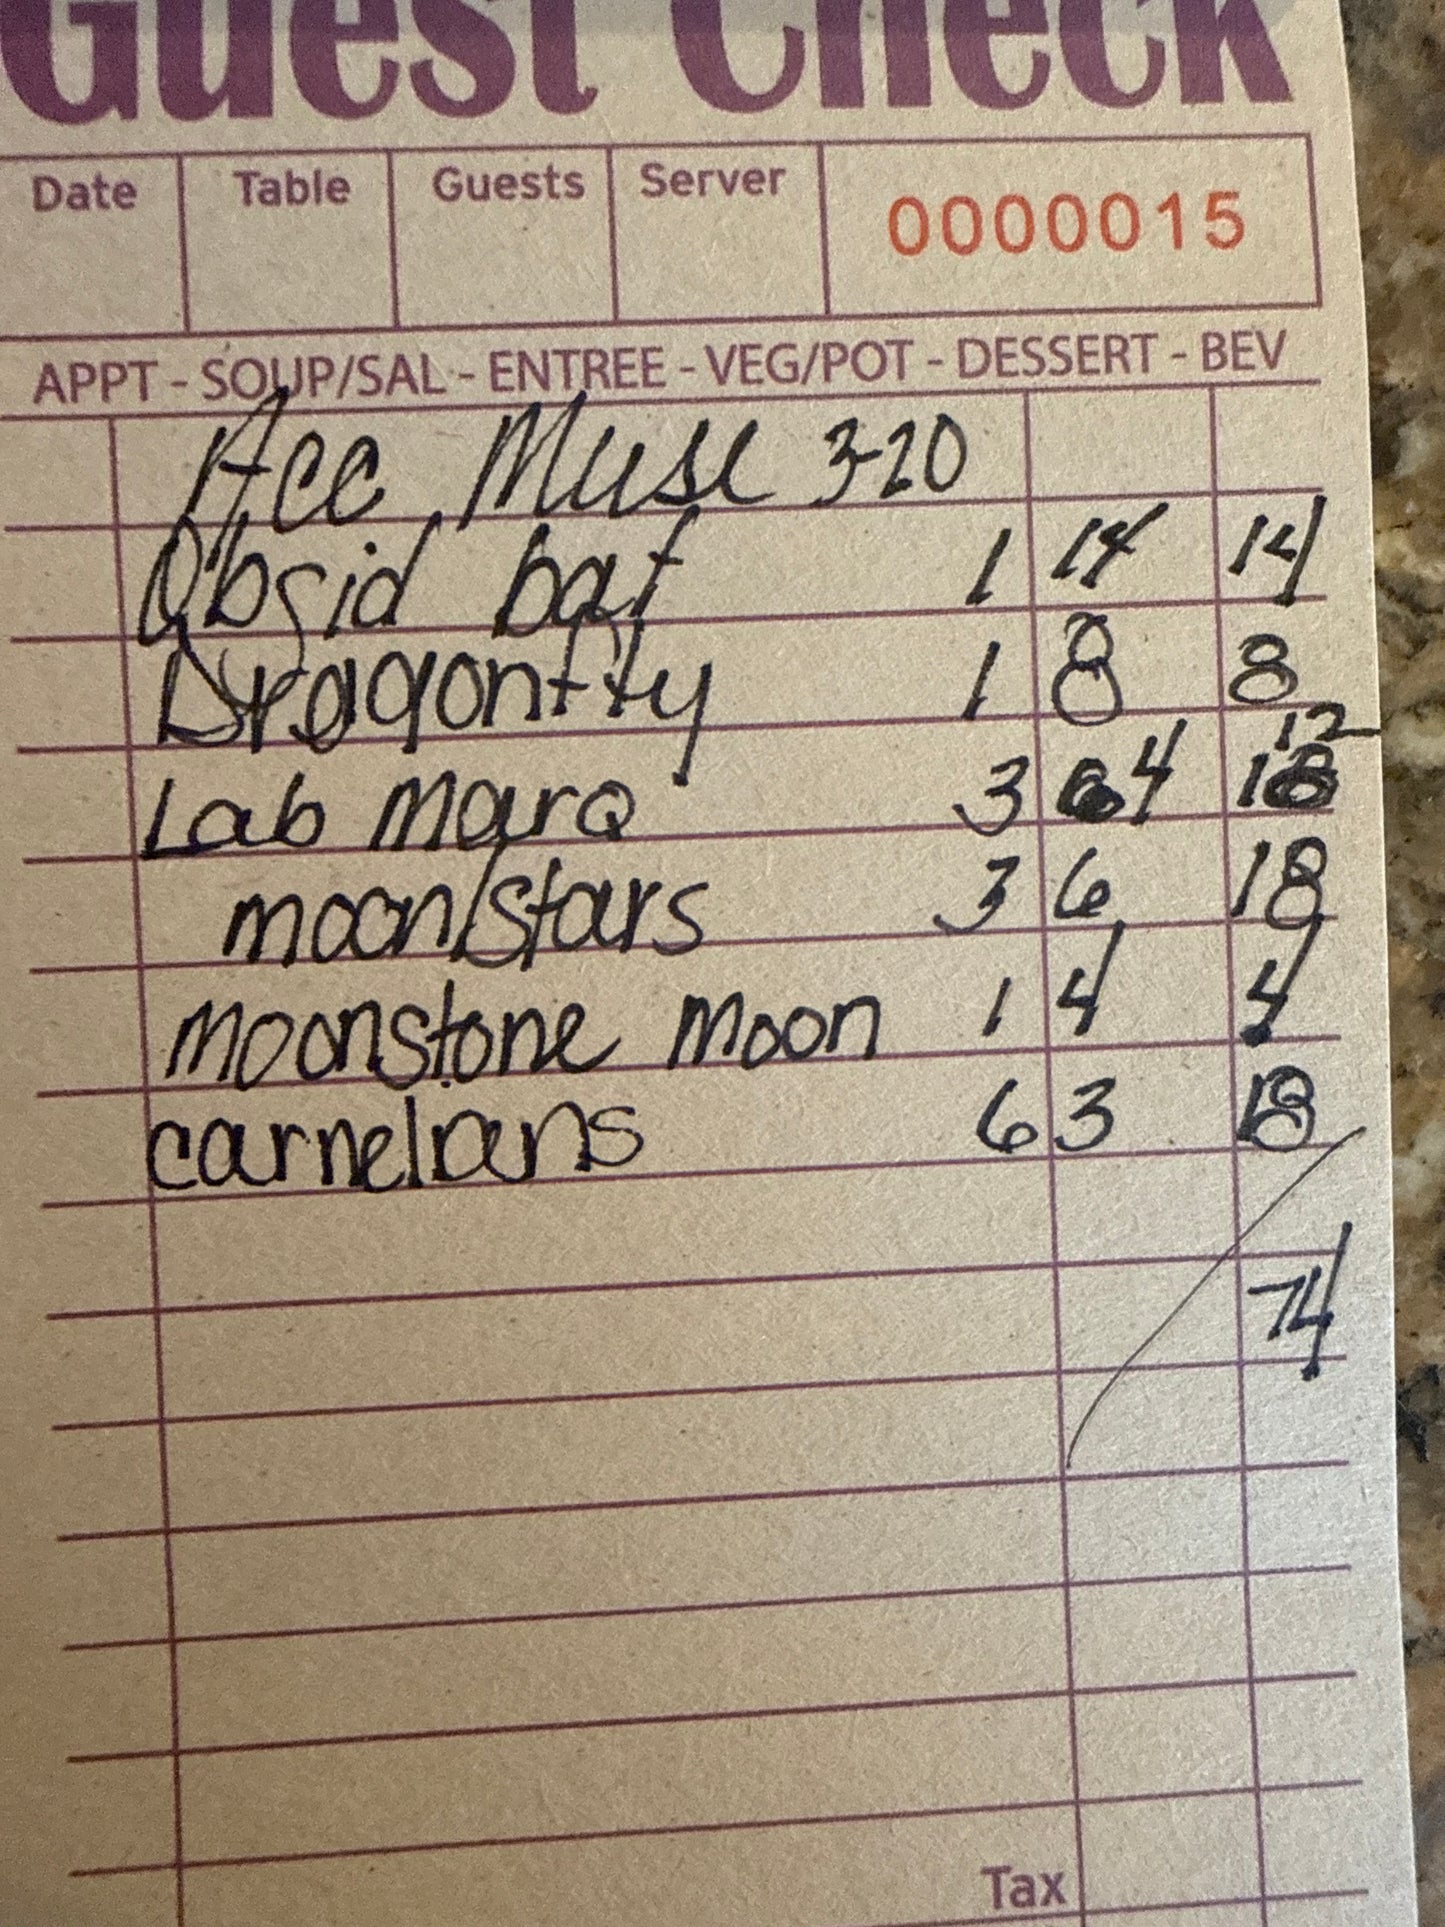 Guest Check
Date Table Guests Server 0000015
APPT - SOUP/SAL - ENTREE - VEG/POT - DESSERT - BEV
Acc Muse 3-20
Obsid bat 1 14 14
Dragonfly 1 8 8
12
Lab Marq 3 4
moon/stars 3 6 18
Moonstone Moon 1 4 4
carnelians 6 3 18
74
Tax